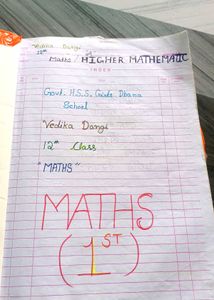 Vedika Dangi
12th
Maths / HIGHER MATHEMATIC
INDEX
Govt. H.S.S. Girls Dbana
School
Vedika Dangi
12th Class
"MATHS"
MATHS
(1ST)